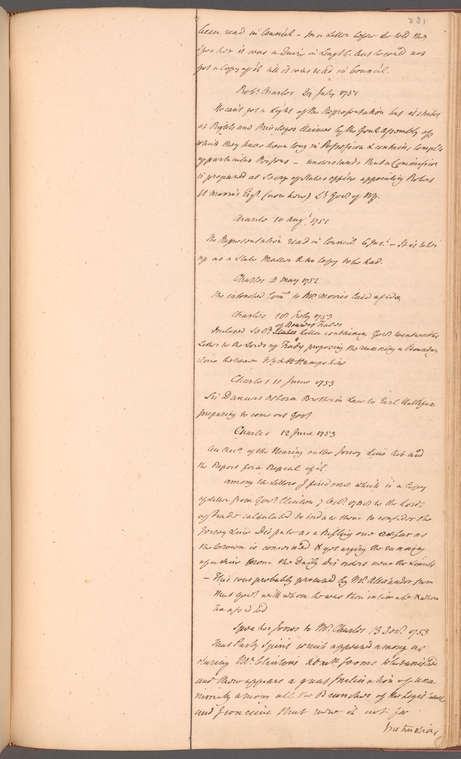 231
been read in Council - In a Letter before he told the
Speaker it was a Quire in Length but he could not
get a Copy of it till it was read in Council.
Robt. Charles 24 July 1751
He cant get a Sight of the Representation but it strikes
at Rights and Privileges Claimed by the Genl Assembly of
which they have been long in Possession & contains Compl's
of particular Persons - understands that a Commission
is prepared at Secry of States office appointing Robert
H Morris Esqr. (now here) Lt Govr. of NY.
Charles 10 Augt. 1751
the Representation read in Council 6 - It is taken
up as a State Matter & no Copy to be had.
Charles May 1752
the intended to Mr Morris laid aside
Charles 10 July 1753
of Board of Trade
Inclosed Letter containing Govr. Wentworths
Letter to the Lords of Trade, proposing the running a Boundary
Line between NY & N Hampshire
Charles 11 June 1753
Sir Danvers Osborn Brother in Law to Earl Hallifax
preparing to come out Govr
Charles 12 June 1753
An Acct. of the Hearing on the Jersey Line Act and
the Report for a Repeal of it
among the Letters I find one which is a Copy
of a Letter from Govr. Clinton 7 to the Lords
of Trade calculated to induce them to consider the
Jersey Line Dispute as a trifling one as far as
the Crown is concerned & yet urging the running
of a Line from the Daily Disorders near the Limits
- This was probably procured by Mr. Alexander from
that Govr. with whom he was then intimate & whom
he
Speaker Jones to Mr. Charles 13 Decr. 1753
That Party Spirit which appeared among us
during Mr. Clintons Admn seems to be banished
and there appears a great Inclination of una
nimity among all the Branches of the Legislature
and I conceive that were it not for
Instructions